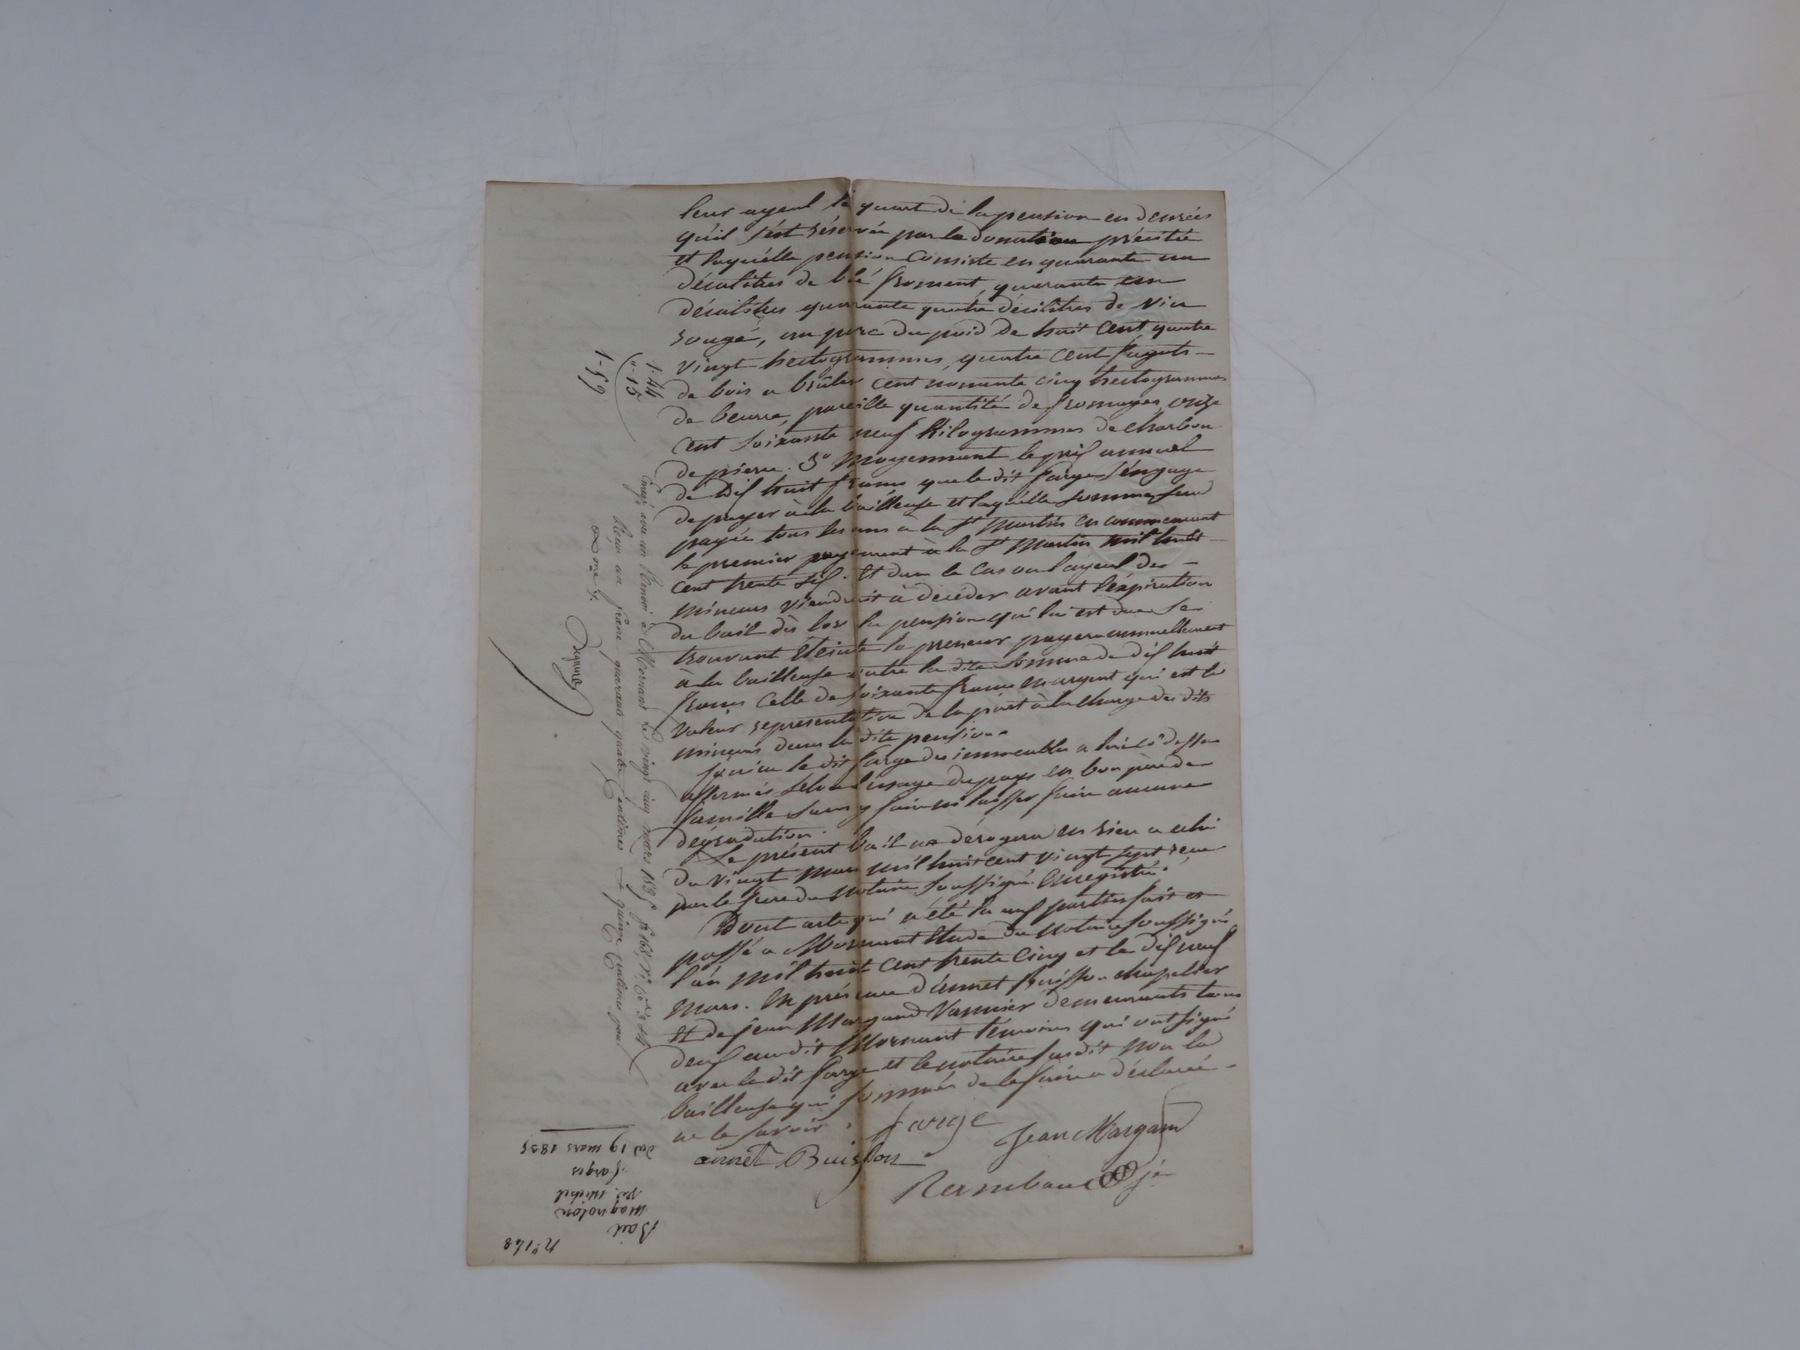 leur ayeul le quart de la pension en denrées
qu'il s'est réservée par la donation précitée
et laquelle pension consiste en quarante un
décalitres de blé froment, quarante un
décalitres quarante quatre décilitres de vin
rouge, un porc du poid de huit cent quatre
vingt hectogrammes, quatre cent fagots
de bois a brûler cent nonante cinq hectogrammes
de beurre, pareille quantité de fromages, onze
cent soixante neuf kilogrammes de charbon
de pierre. 3° Moyennant le prix annuel
de dix huit francs que le dit farge s'engage
de payer à la bailleuse et laquelle somme sera
payée tous les ans à la St Martin en commencant
le premier payement à la St Martin mil huit
cent trente six. Et dans le cas ou l'ayeul des
mineurs viendroit a décéder avant l'éxpiration
du bail dès lors la pension qui lui est due se
trouvant éteinte le preneur payera annuellement
à la bailleuse outre la dite somme de dix huit
francs celle de soixante francs en argent qui est la
valeur représentative de la part à la charge des dits
mineurs dans la dite pension.
Jouira le dit farge des immeubles a lui ci dessus
affermés selon l'usage du pays en bon père de
famille sans y faire ni laisser faire aucune
dégradation.
Le présent bail ne dérogera en rien a celui
du vingt mars mil huit cent vingt sept reçu
par le frere du notaire soussigné. Enregistré.
Dont acte qui a été lu aux parties fait et
passé a Mornant Etude du notaire soussigné,
l'an mil huit cent trente cinq et le dix neuf
mars. En présence d'annet Buisson chapelier
Et de jean Margand Vannier demeurants tous
deux au dit Mornant témoins qui ont signé
avec le dit farge et le notaire susdit non la
bailleuse qui sommée de le faire a déclaré
ne le savoir.
farge
Jean Margand
annet Buisson
1.44
0.15
1.59
Enregistré à Mornant le vingt cinq mars 1835 f° 168
Reçu un franc quarante quatre centimes et quinze centimes pour
N° 148
Bail
magnolon
Michel
farges
du 19 mars 1835